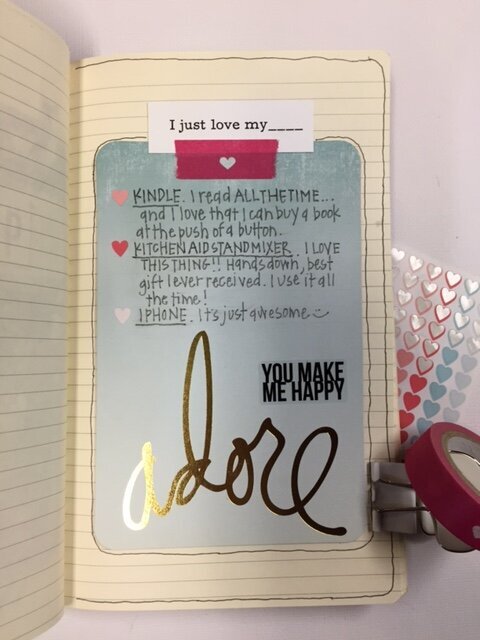 I just love my____
KINDLE. I read ALL THE TIME...
and I love that I can buy a book
at the push of a button.
KITCHENAID STAND MIXER. I LOVE
THIS THING!! Hands down, best
gift I ever received. I use it all
the time!
IPHONE. It's just awesome
YOU MAKE
ME HAPPY
adore